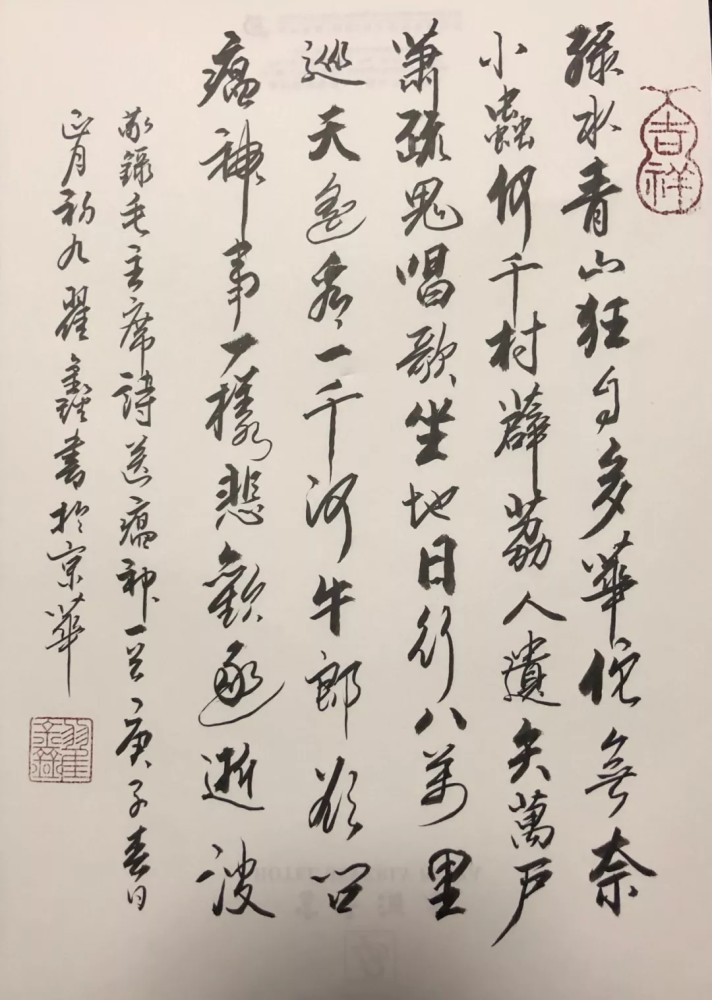 吉祥
綠水青山狂自多華佗無奈
小蟲何千村薜荔人遺矢萬戶
蕭疏鬼唱歌坐地日行八萬里
巡天遙看一千河牛郎欲問
瘟神事一樣悲歡逐逝波
敬錄毛主席詩送瘟神一首庚子春日
正月初九翟書於京華